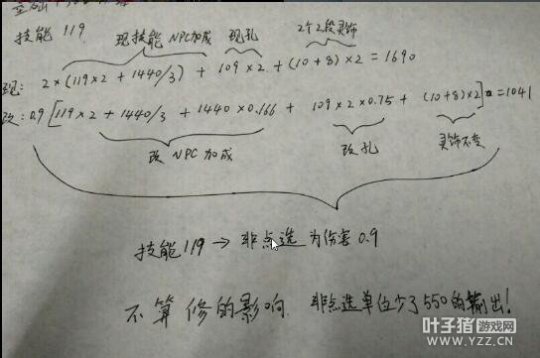 技能 119
现技能NPC加成 现孔 2个2段灵饰
现: 2×(119×2 + 1440/3) + 109×2 + (10+8)×2 = 1690
改: 0.9 [119×2 + 1440/3 + 1440×0.166 + 109×2×0.75 + (10+8)×2] = 1041
改 NPC 加成 改孔 灵饰不变
技能119 → 非点选 为伤害 0.9
不算修的影响. 非点选单位少了550的输出!
叶子猪游戏网
WWW.YZZ.CN